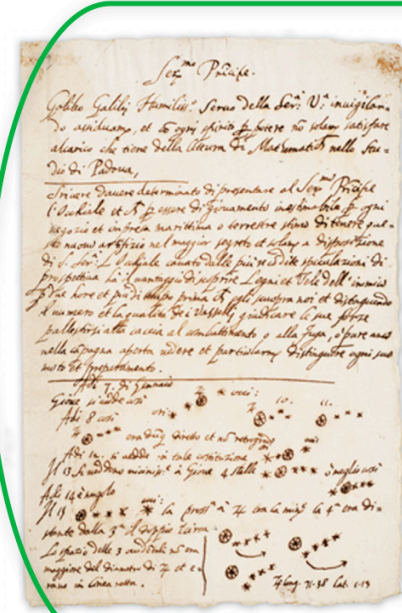 Ser.mo Principe.
Galileo Galilei Humiliss.o Servo della Ser.a V.a invigilan-
do assiduam.te, et co ogni spirito p potere no solam satisfare
al carico che tiene della lettura di Mathematich nello Stu-
dio di Padova,
Scrivere havere determinato di presentare al Ser.mo Principe
l'Occhiale et p essere di giovamento inestimabile p ogni
negozio et impresa marittima o terrestre stimo di tenere que-
sto nuovo artifizio nel maggior segreto et solam a disposizione
di S. Ser.a L'Occhiale cavato dalle più recondite speculazioni di
prospettiva ha il vantaggio di scoprire Legni et Vele dell'inimico
p due hore et più di tempo prima ch egli scuopra noi et distinguendo
il numero et la qualità de i Vasselli giudicare le sue forze
pallestirsi alla caccia al combattimento o alla fuga, o pure anco
nella campagna aperta vedere et particolarm distinguere ogni suo
moto et preparamento.
Adi 7. di Gennaio
Giove si vede così
Adi 8 così
era dunq diretto et no retrogrado
Adi 12. si vedde in tale costituzione
Il 13. si veddono vicinis.e a Giove 4 stelle
Adi 14 è nugolo
Il 15
la pross.a a ♃ era la min.e la 4.a era di-
stante dalla 3.a il doppio circa
Lo spazio delle 3 occidentali no era
maggiore del diametro di ♃ et e-
rano in linea retta.
♃ long. 71.38 lat. 1.13